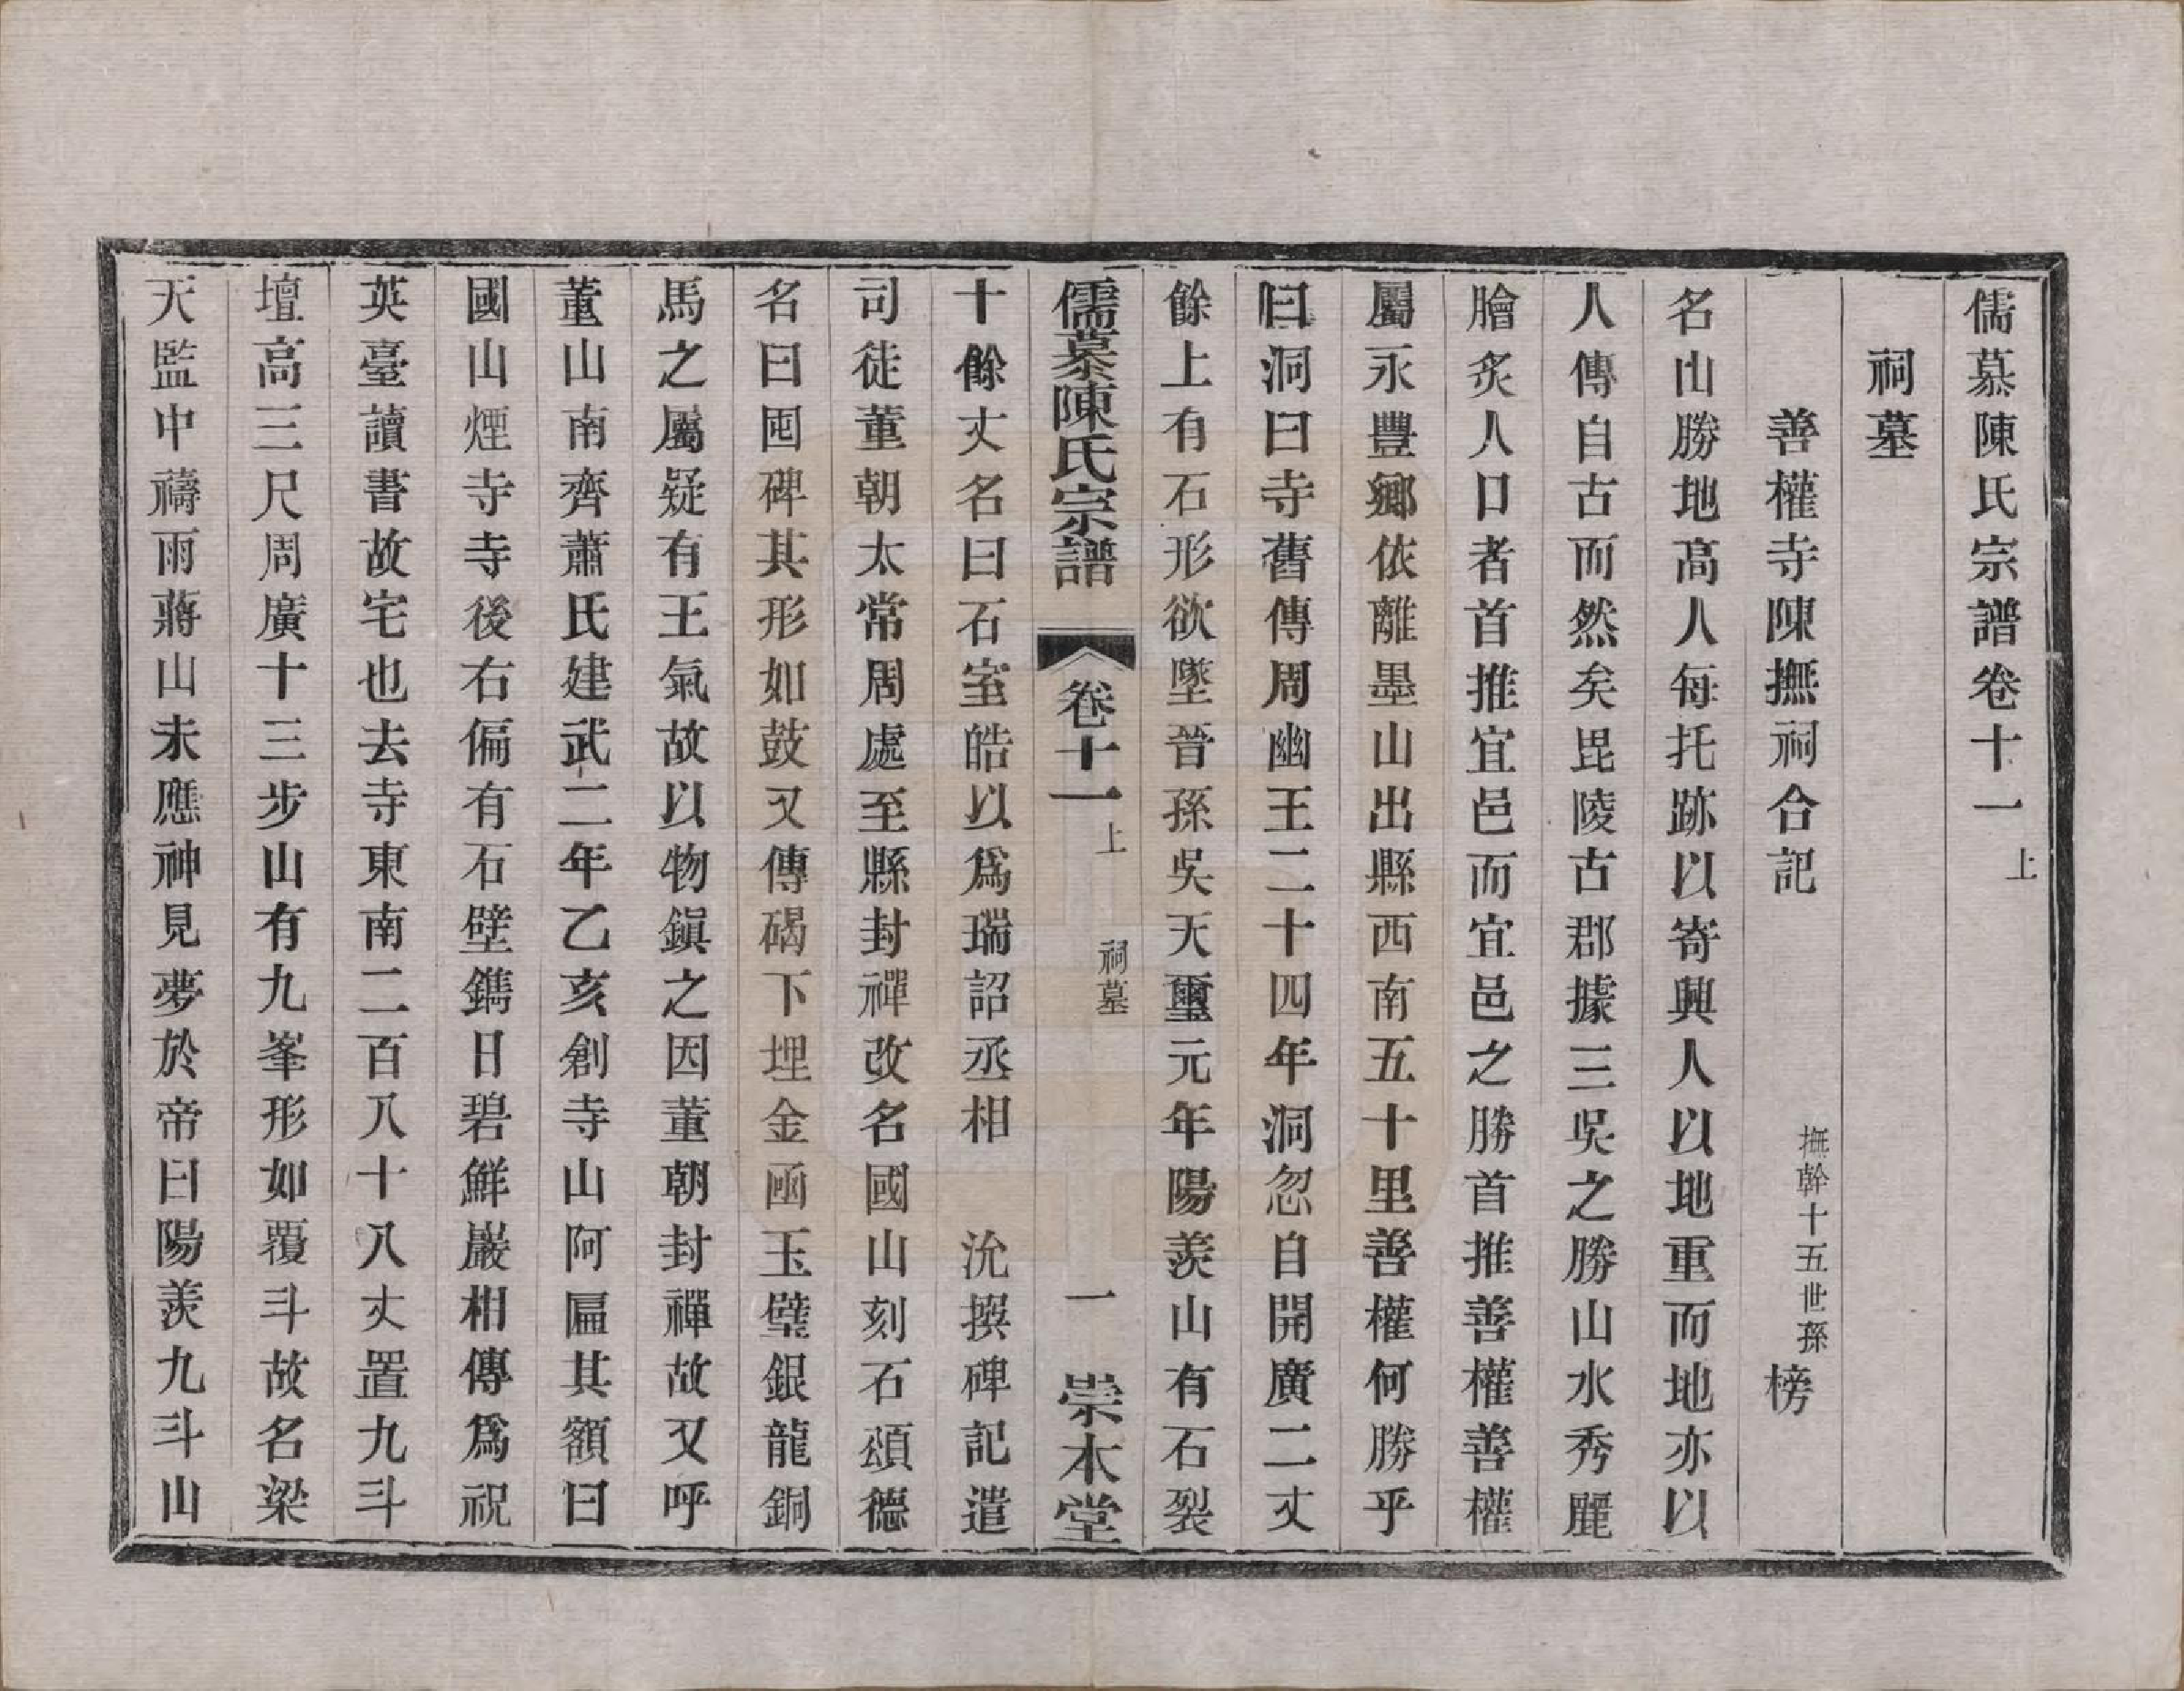 儒慕陳氏宗譜卷十一上
祠墓
善權寺陳撫祠合記 撫幹十五世孫 榜
名山勝地高人每托跡以寄興人以地重而地亦以
人傳自古而然矣毘陵古郡據三吳之勝山水秀麗
膾炙人口者首推宜邑而宜邑之勝首推善權善權
屬永豐鄉依離墨山出縣西南五十里善權何勝乎
曰洞曰寺舊傳周幽王二十四年洞忽自開廣二丈
餘上有石形欲墜晉孫吳天璽元年陽羨山有石裂
儒慕陳氏宗譜 卷十一上 祠墓 一 崇本堂
十餘丈名曰石室皓以爲瑞詔丞相 沇撰碑記遣
司徒董朝太常周處至縣封禪改名國山刻石頌德
名曰囤碑其形如鼓又傳碣下埋金函玉璧銀龍銅
馬之屬疑有王氣故以物鎭之因董朝封禪故又呼
董山南齊蕭氏建武二年乙亥創寺山阿匾其額曰
國山煙寺寺後右偏有石壁鐫曰碧鮮巖相傳爲祝
英臺讀書故宅也去寺東南二百八十八丈置九斗
壇高三尺周廣十三步山有九峯形如覆斗故名梁
天監中禱雨蔣山未應神見夢於帝曰陽羨九斗山